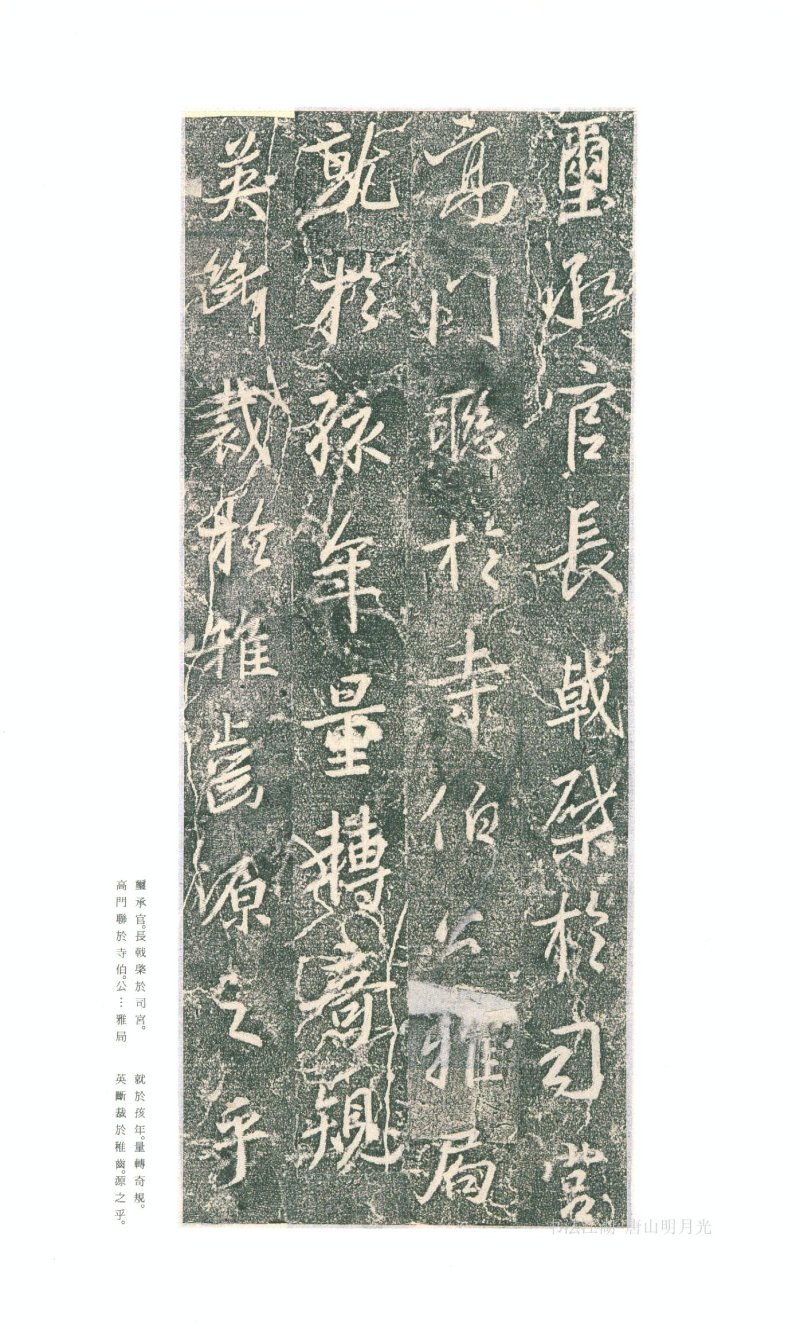 璽承官長戟棨於司宮
高門聯於寺伯公雅局
就於孩年量轉奇規
英斷裁於稚齒源之乎
璽承官。長戟棨於司宮。
高門聯於寺伯。公…雅局
就於孩年。量轉奇規。
英斷裁於稚齒。源之乎。
唐山明月光